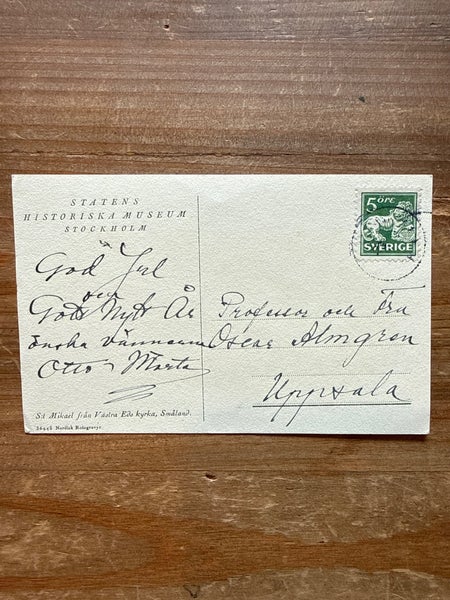 STATENS
HISTORISKA MUSEUM
STOCKHOLM
God Jul
och
Gott Nytt År
önska vännerna
Otto Märta
5 ÖRE
SVERIGE
Professor och Fru
Oscar Almgren
Uppsala
S:t Mikael från Västra Eds kyrka, Småland.
Nordisk Rotogravyr